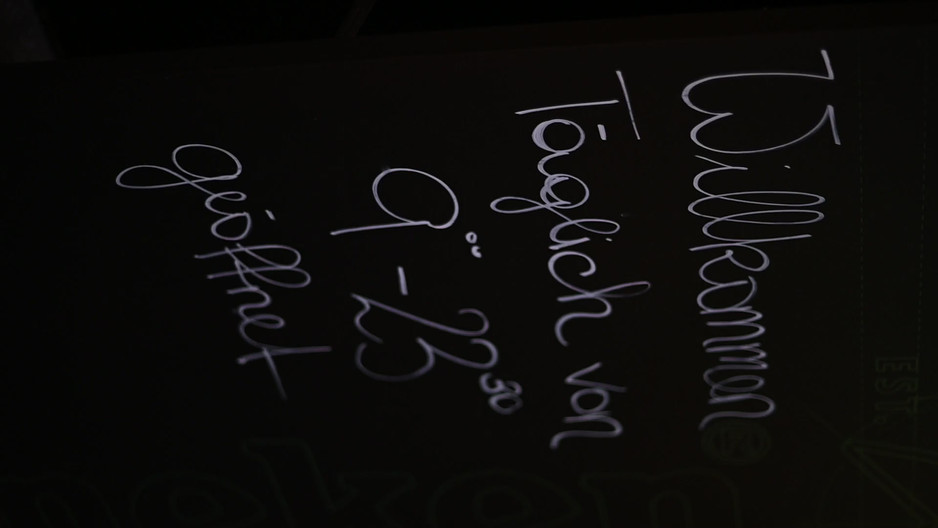 Willkommen
Täglich von
9⁰⁰ - 23³⁰
geöffnet
EST.